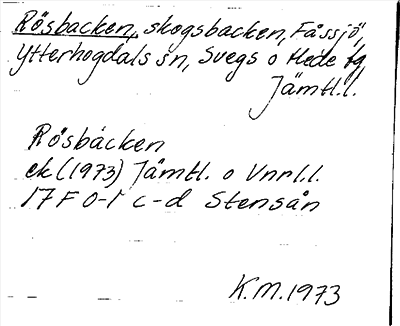 Rösbacken, skogsbacken, Fåssjö,
Ytterhogdals sn, Svegs o Hede tg,
Jämtl.l.
Rösbacken
ek (1973) Jämtl. o Vnrl.l.
17F 0-1 c-d Stensån
K.M. 1973